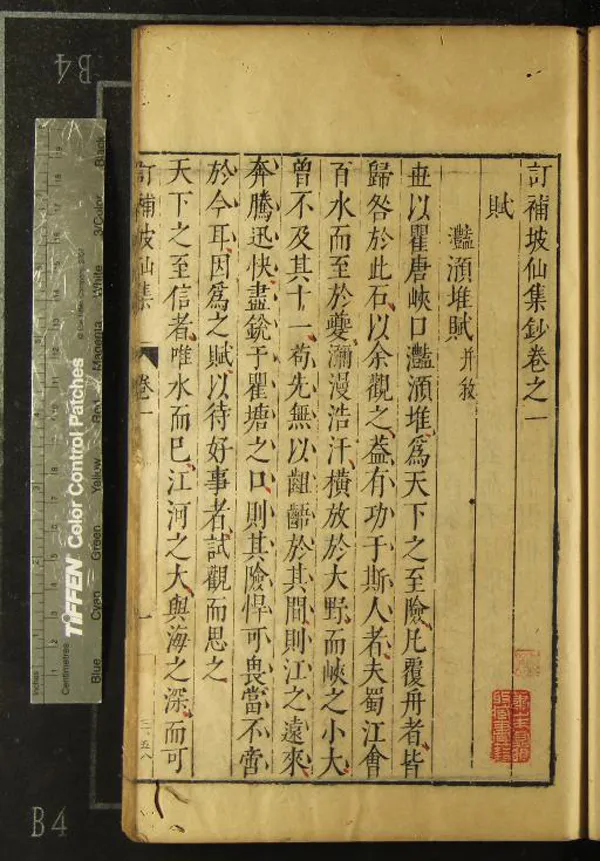 訂補坡仙集鈔卷之一
賦
灩澦堆賦 并敘
世以瞿唐峽口灩澦堆爲天下之至險凡覆舟者皆
歸咎於此石以余觀之葢有功于斯人者夫蜀江會
百水而至於夔瀰漫浩汗橫放於大野而峽之小大
曾不及其十一苟先無以齟齬於其間則江之遠來
奔騰迅快盡銳于瞿塘之口則其險悍可畏當不啻
於今耳因爲之賦以待好事者試觀而思之
天下之至信者唯水而已江河之大與海之深而可
訂補坡仙集 卷一 一
TIFFEN Color Control Patches
Blue Cyan Green Yellow Red Magenta White 3/Color Black
Inches
Centimetres
B4
B4